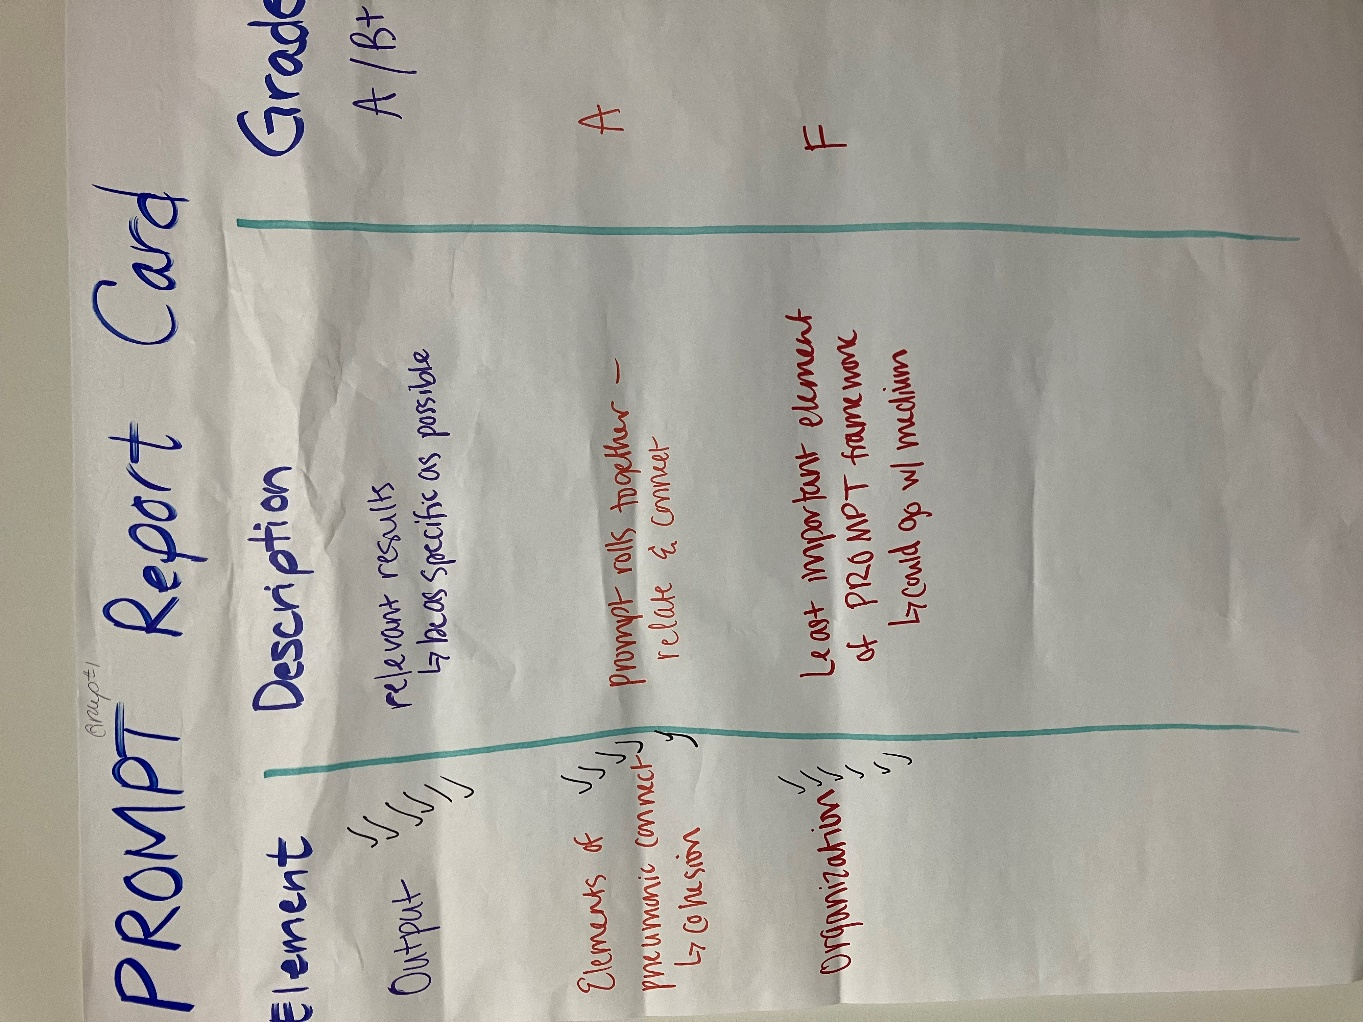 PROMPT Report Card
Element Description Grade
Output
relevant results
↳ be as specific as possible
A/B+
Elements of
pneumonic connect
↳ Cohesion
prompt rolls together –
relate & connect
A
Organization
Least important element
of PROMPT framework
↳ could go w/ medium
F